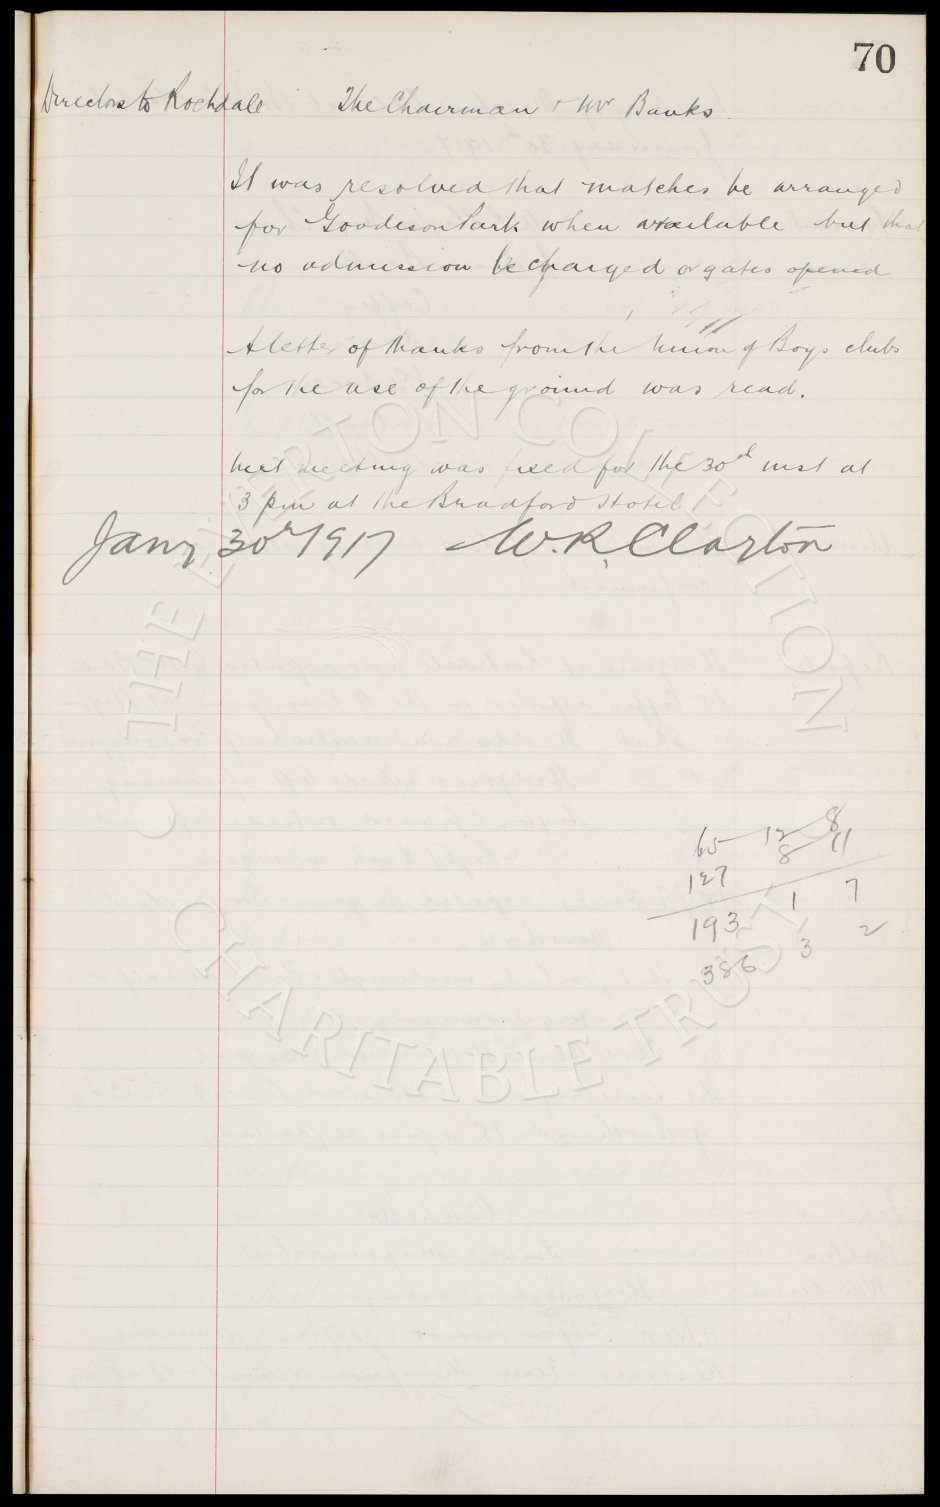 70
Directors to Rochdale The Chairman & Mr Banks.
It was resolved that matches be arranged
for Goodison Park when available but that
no admission be charged or gates opened
A letter of thanks from the Union of Boys clubs
for the use of the ground was read.
Next meeting was fixed for the 30th inst at
3 pm at the Bradford Hotel
Jany 30th 1917 W. R. Clayton
THE EVERTON COLLECTION
65 - 12 - 8
127 8 11
193 1 7
386 3 2
CHARITABLE TRUST